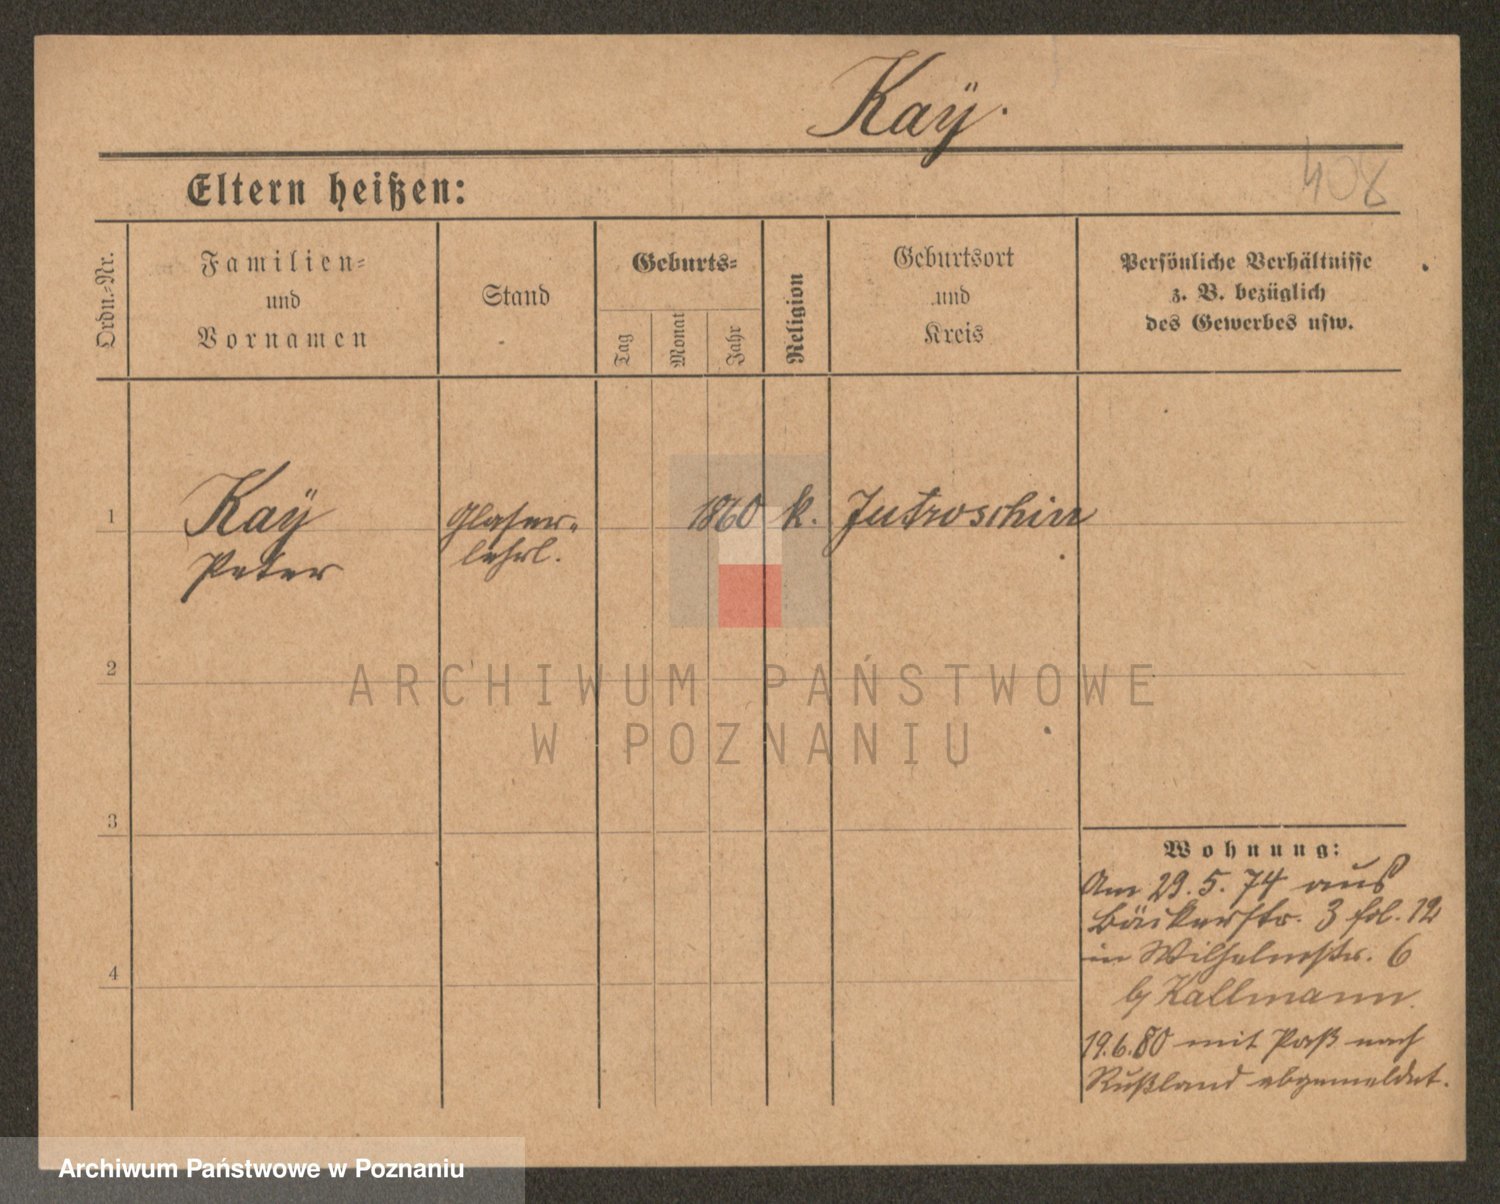 Kaÿ.
408
Eltern heißen:
Ordn.-Nr.
Familien-
und
Vornamen
Stand
Geburts-
Tag
Monat
Jahr
Religion
Geburtsort
und
Kreis
Persönliche Verhältnisse
z. B. bezüglich
des Gewerbes usw.
1
Kaÿ
Peter
Glaser-
lehrl.
1860
k.
Jutroschin
2
ARCHIWUM PAŃSTWOWE
W POZNANIU
3
4
Wohnung:
Am 29.5.74 aus
Bäckerstr. 3 fol. 12
in Wilhelmstr. 6
b/ Kallmann.
19.6.80 mit Paß nach
Rußland abgemeldet.
Archiwum Państwowe w Poznaniu